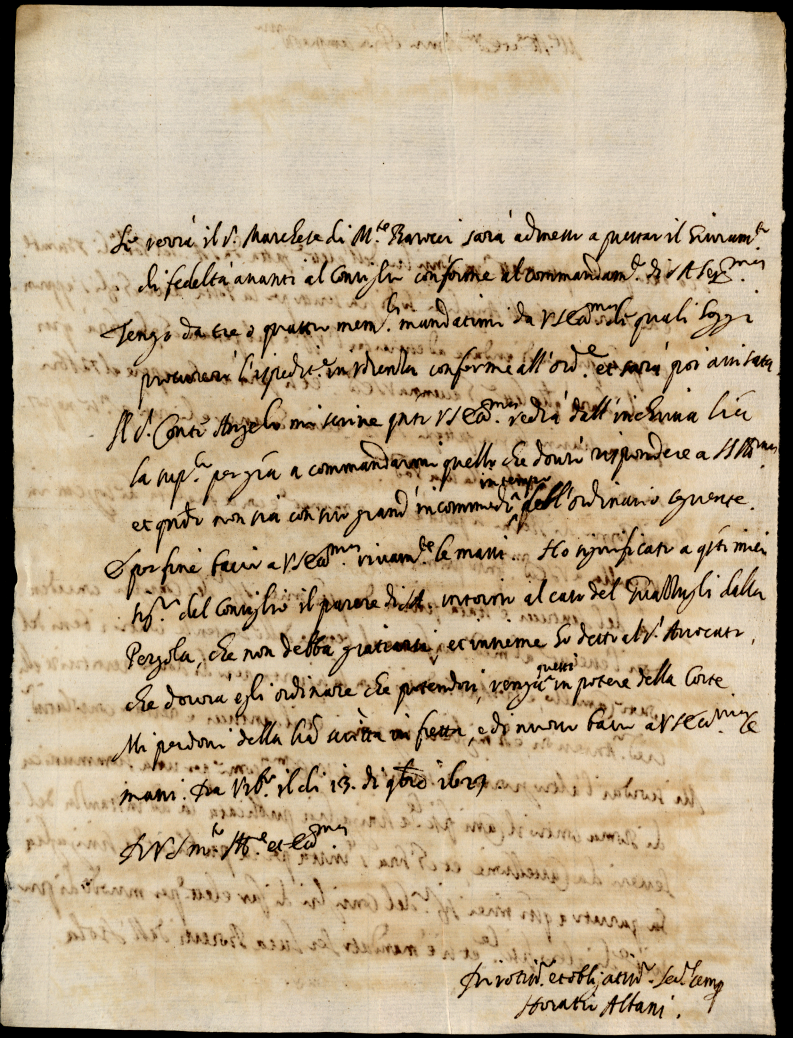 Se verrà il S. Marchese di M.te Barocci sarà admesso a prestar il Giuram.to
di fedeltà avanti al Consiglio conforme al commandam.to di S A Ser.ma
Tengo da tre o quattro mem.li mandatimi da V S Ecc.ma li quali hoggi
procurerò l'ispedit.e in udienza conforme all'ord.e et sarà poi avisata
Il S. Conte Angelo mi scrive q.nto V S Ecc.ma vedrà dall'inclusa l'ra
la sup.co per gra a commandarmi quello che dovrò rispondere a S S Ill.ma
et q.ndo non sia con suo grand' incommodo in tempo dell'ordinario seguente.
E per fine bacio a V S Ecc.ma vivam.te le mani. Ho significato a q.sti miei
sig.ri del Consiglio il parere di S A intorno al caso del dalla
Pergola, che non debba gratiarsi, et insieme ho detto al S. Avvocato,
che dovrà egli ordinare che potendosi, venga questo in potere della Corte
Mi perdoni della l'ra scritta in fretta, e di nuovo bacio a V S Ecc.ma le
mani. Da Urb.o il dì 13. di 9bre 1627
Di V S molto Ill.re et Ecc.ma
Devotiss.o et oblig.atiss.o Ser.e semp.
Horatio Albani.